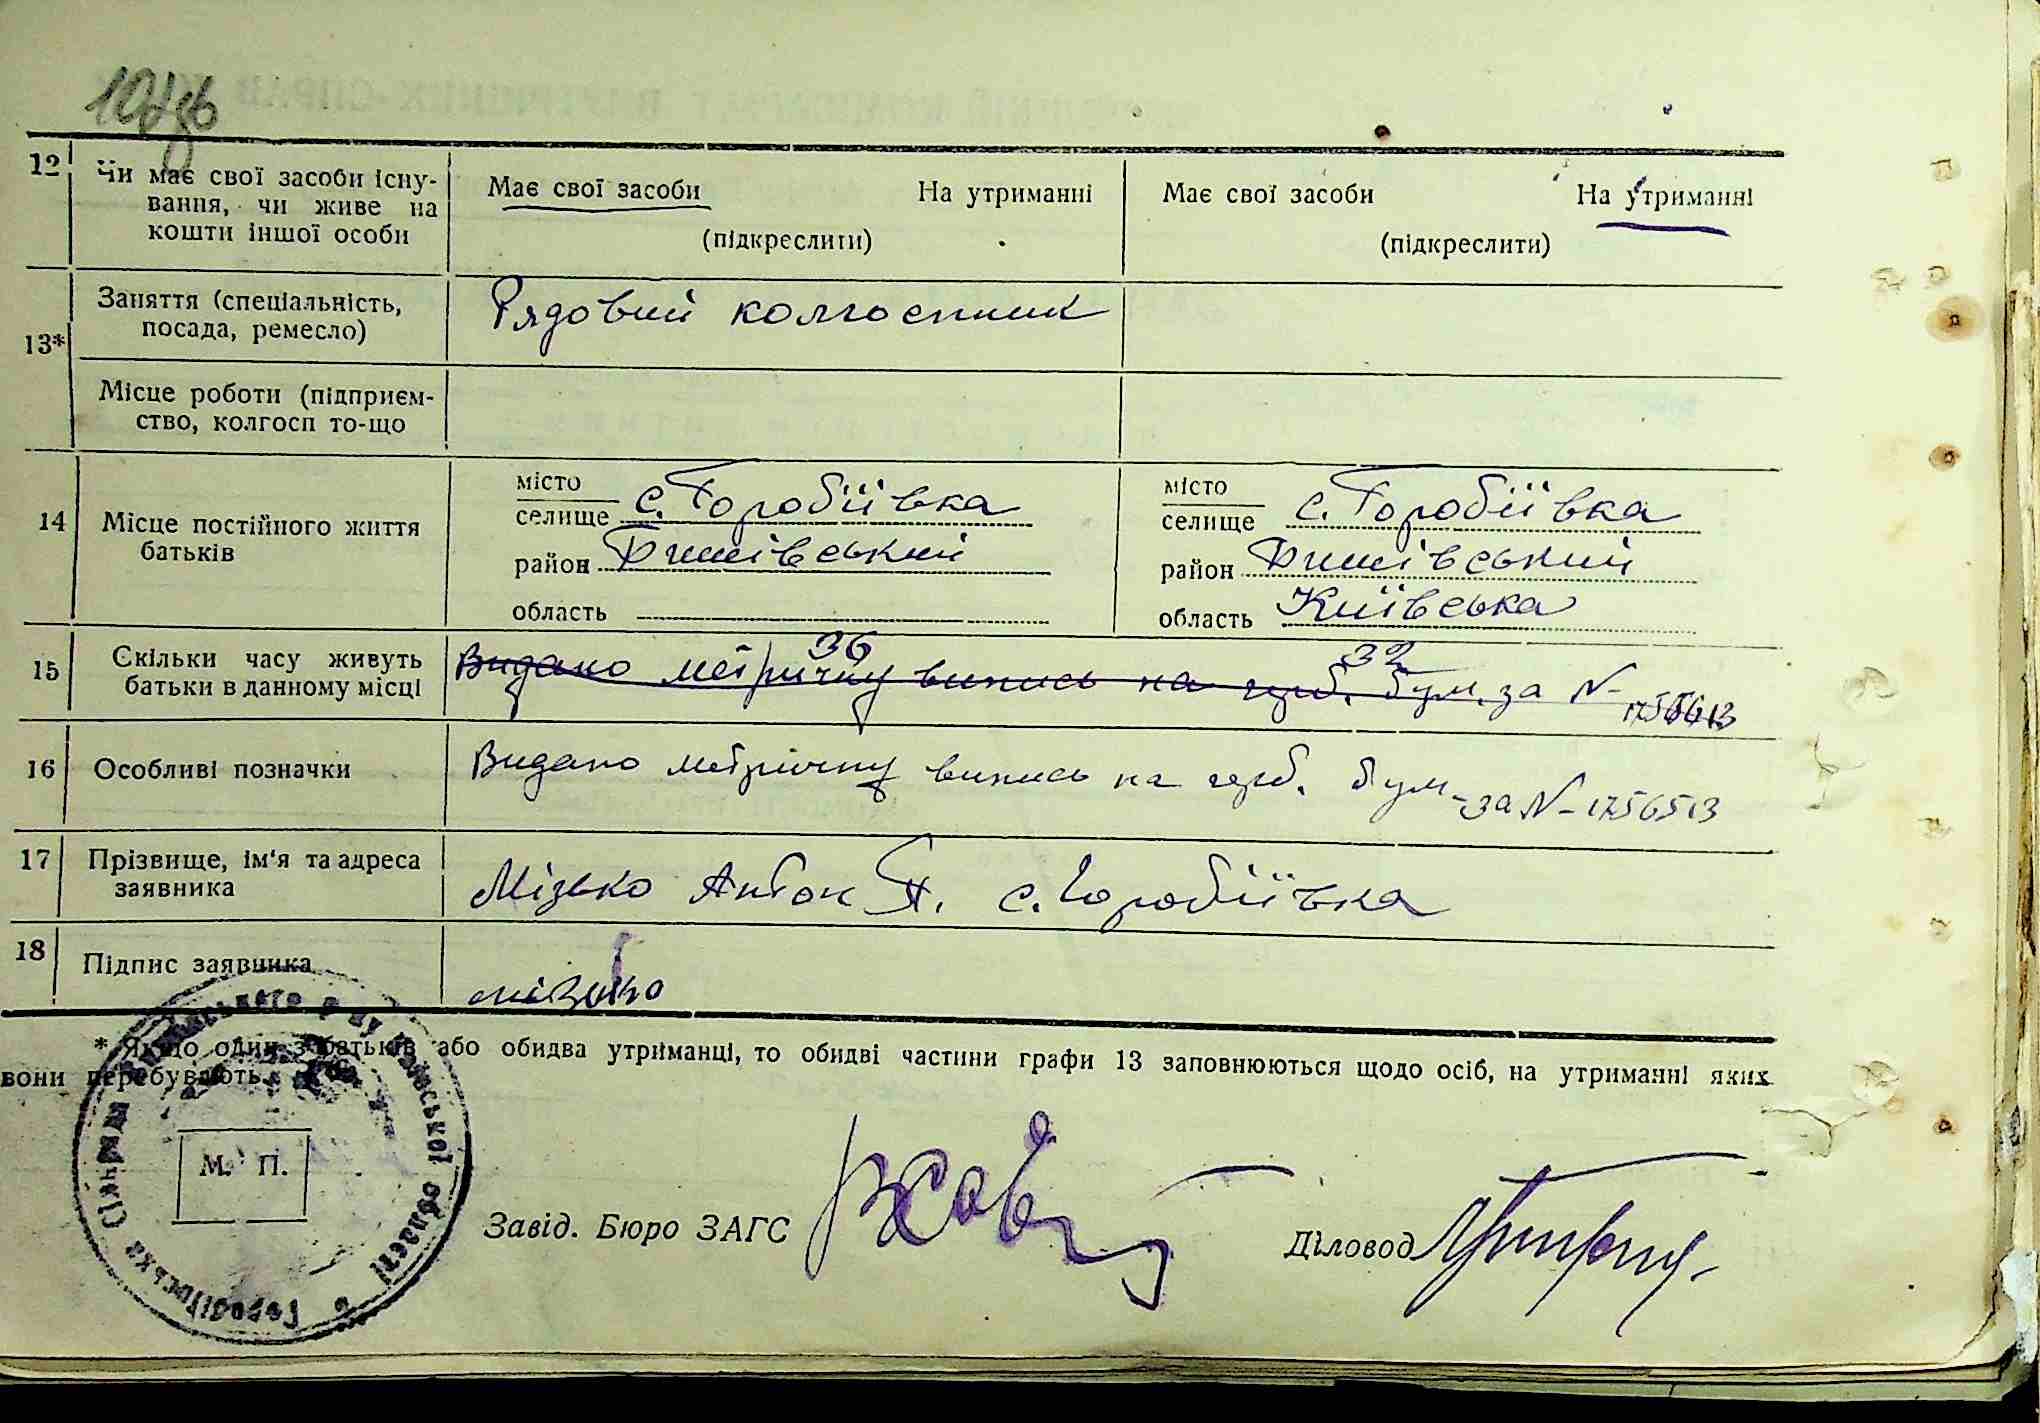 10 зв
12 Чи має свої засоби існу-
вання, чи живе на
кошти іншої особи
Має свої засоби На утриманні
(підкреслити)
Має свої засоби На утриманні
(підкреслити)
13*
Заняття (спеціальність,
посада, ремесло)
Рядовий колгоспник
Місце роботи (підприєм-
ство, колгосп то-що
14 Місце постійного життя
батьків
місто
селище с. Горобіївка
район
область
місто
селище с. Горобіївка
район
область Київська
15 Скільки часу живуть
батьки в данному місці
36 32
Видано метричну випись на герб. бум. за N-
16 Особливі позначки
Видано метричну випись на герб. бум. за N- 1756513
17 Прізвище, ім'я та адреса
заявника
Мізько Антон П. с. Горобіївка
18 Підпис заявника
Мізько
* Якщо один з батьків або обидва утриманці, то обидві частини графи 13 заповнюються щодо осіб, на утриманні яких
вони перебувають.
М. П.
Завід. Бюро ЗАГС
Діловод